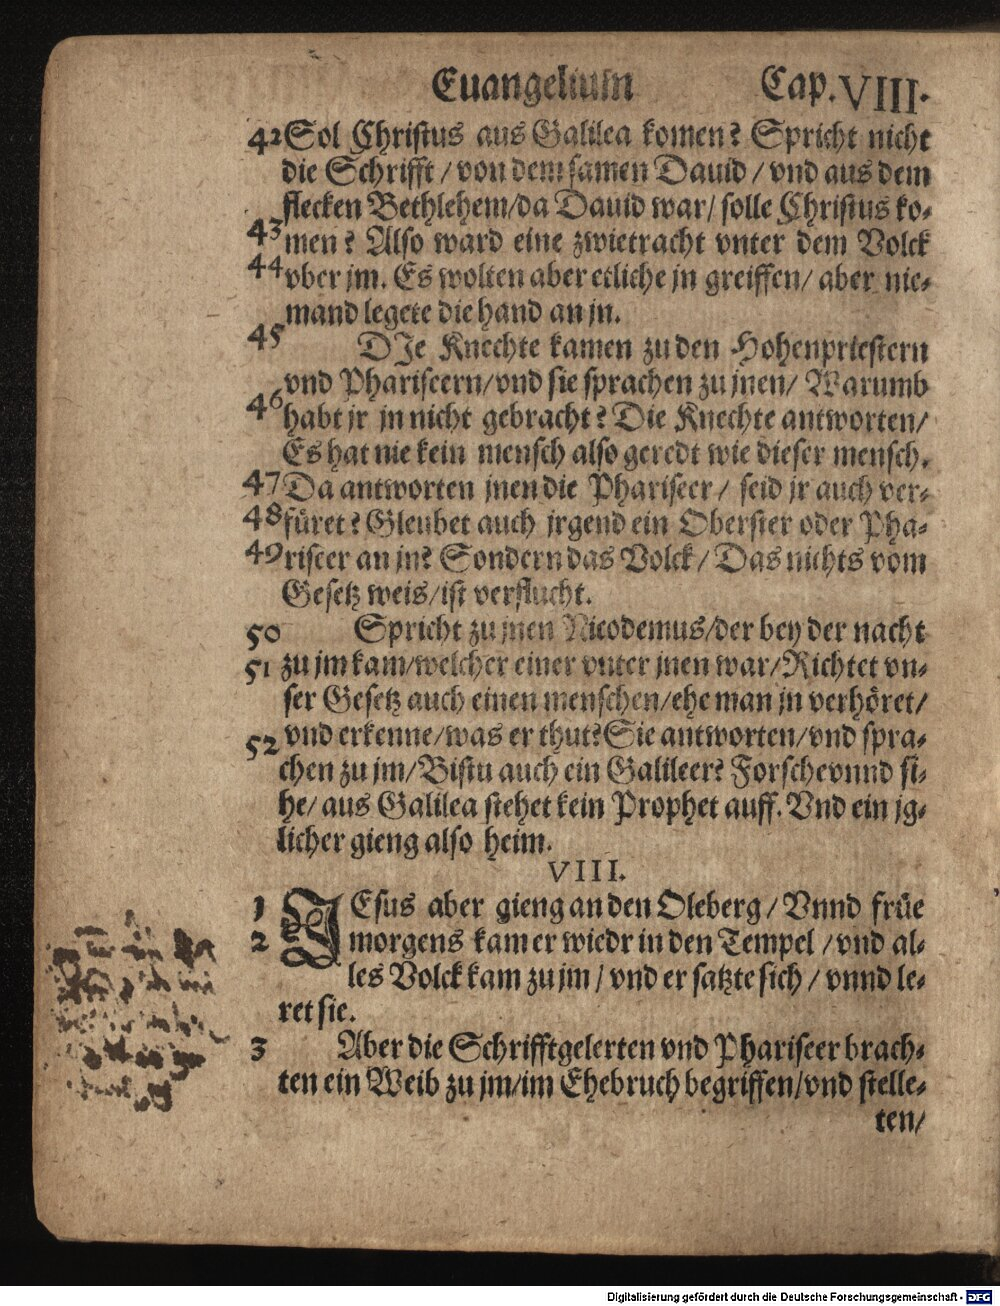 Euangelium Cap. VIII.
42 Sol Christus aus Galilea komen? Spricht nicht
die Schrifft / von dem samen Dauid / vnd aus dem
flecken Bethlehem/da Dauid war/ solle Christus ko-
43 men? Also ward eine zwietracht vnter dem Volck
44 vber jm. Es wolten aber etliche jn greiffen/ aber nie-
mand legete die hand an jn.
45 DJe Knechte kamen zu den Hohenpriestern
vnd Phariseern/vnd sie sprachen zu jnen/ Warumb
46 habt jr jn nicht gebracht? Die Knechte antworten/
Es hat nie kein mensch also geredt wie dieser mensch.
47 Da antworten jnen die Phariseer/ seid jr auch ver-
48 füret? Gleubet auch jrgend ein Oberster oder Pha-
49 riseer an jn? Sondern das Volck/ Das nichts vom
Gesetz weis/ist verflucht.
50 Spricht zu jnen Nicodemus/der bey der nacht
51 zu jm kam/welcher einer vnter jnen war/Richtet vn-
ser Gesetz auch einen menschen/ehe man jn verhöret/
vnd erkenne/was er thut? Sie antworten/vnd spra-
52 chen zu jm/Bistu auch ein Galileer? Forsche vnnd si-
he/ aus Galilea stehet kein Prophet auff. Vnd ein jg-
licher gieng also heim.
VIII.
1 JEsus aber gieng an den Oleberg/ Vnnd früe
2 morgens kam er wiedr in den Tempel /vnd al-
les Volck kam zu jm / vnd er satzte sich / vnnd le-
ret sie.
3 Aber die Schrifftgelerten vnd Phariseer brach-
ten ein Weib zu jm/im Ehebruch begriffen/vnd stelle-
ten/
Digitalisierung gefördert durch die Deutsche Forschungsgemeinschaft - DFG